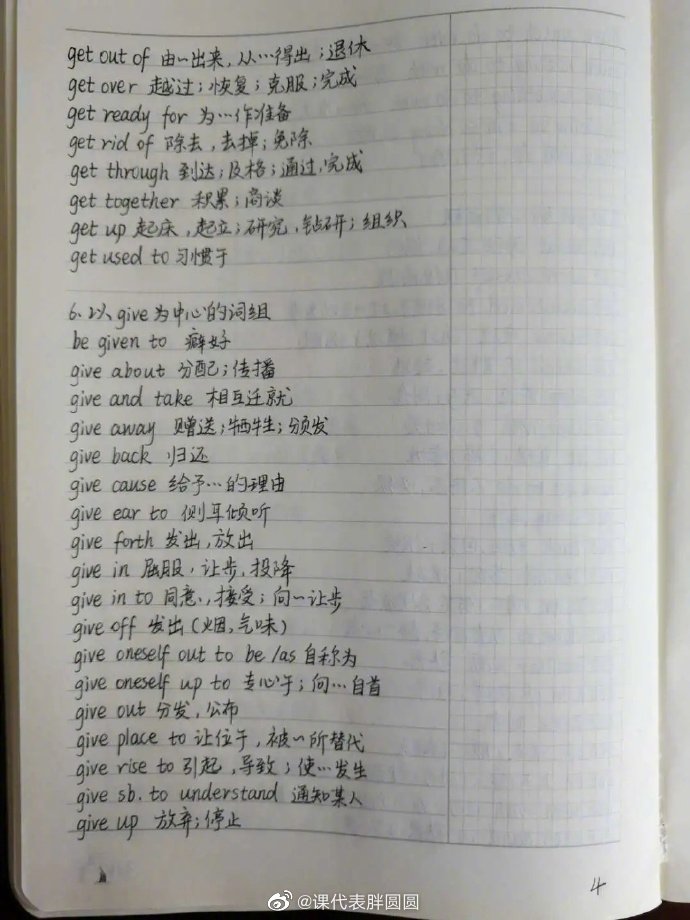 get out of 由…出来，从…得出；退休
get over 越过；恢复；克服；完成
get ready for 为…作准备
get rid of 除去，去掉；免除
get through 到达；及格；通过，完成
get together 积累；商谈
get up 起床，起立；研究，钻研；组织
get used to 习惯于
6.以give为中心的词组
be given to 癖好
give about 分配；传播
give and take 相互迁就
give away 赠送；牺牲；颁发
give back 归还
give cause 给予…的理由
give ear to 侧耳倾听
give forth 发出，放出
give in 屈服，让步，投降
give in to 同意，接受；向…让步
give off 发出(烟，气味)
give oneself out to be /as 自称为
give oneself up to 专心于；向…自首
give out 分发，公布
give place to 让位于，被…所替代
give rise to 引起，导致；使…发生
give sb. to understand 通知某人
give up 放弃；停止
4
@课代表胖圆圆